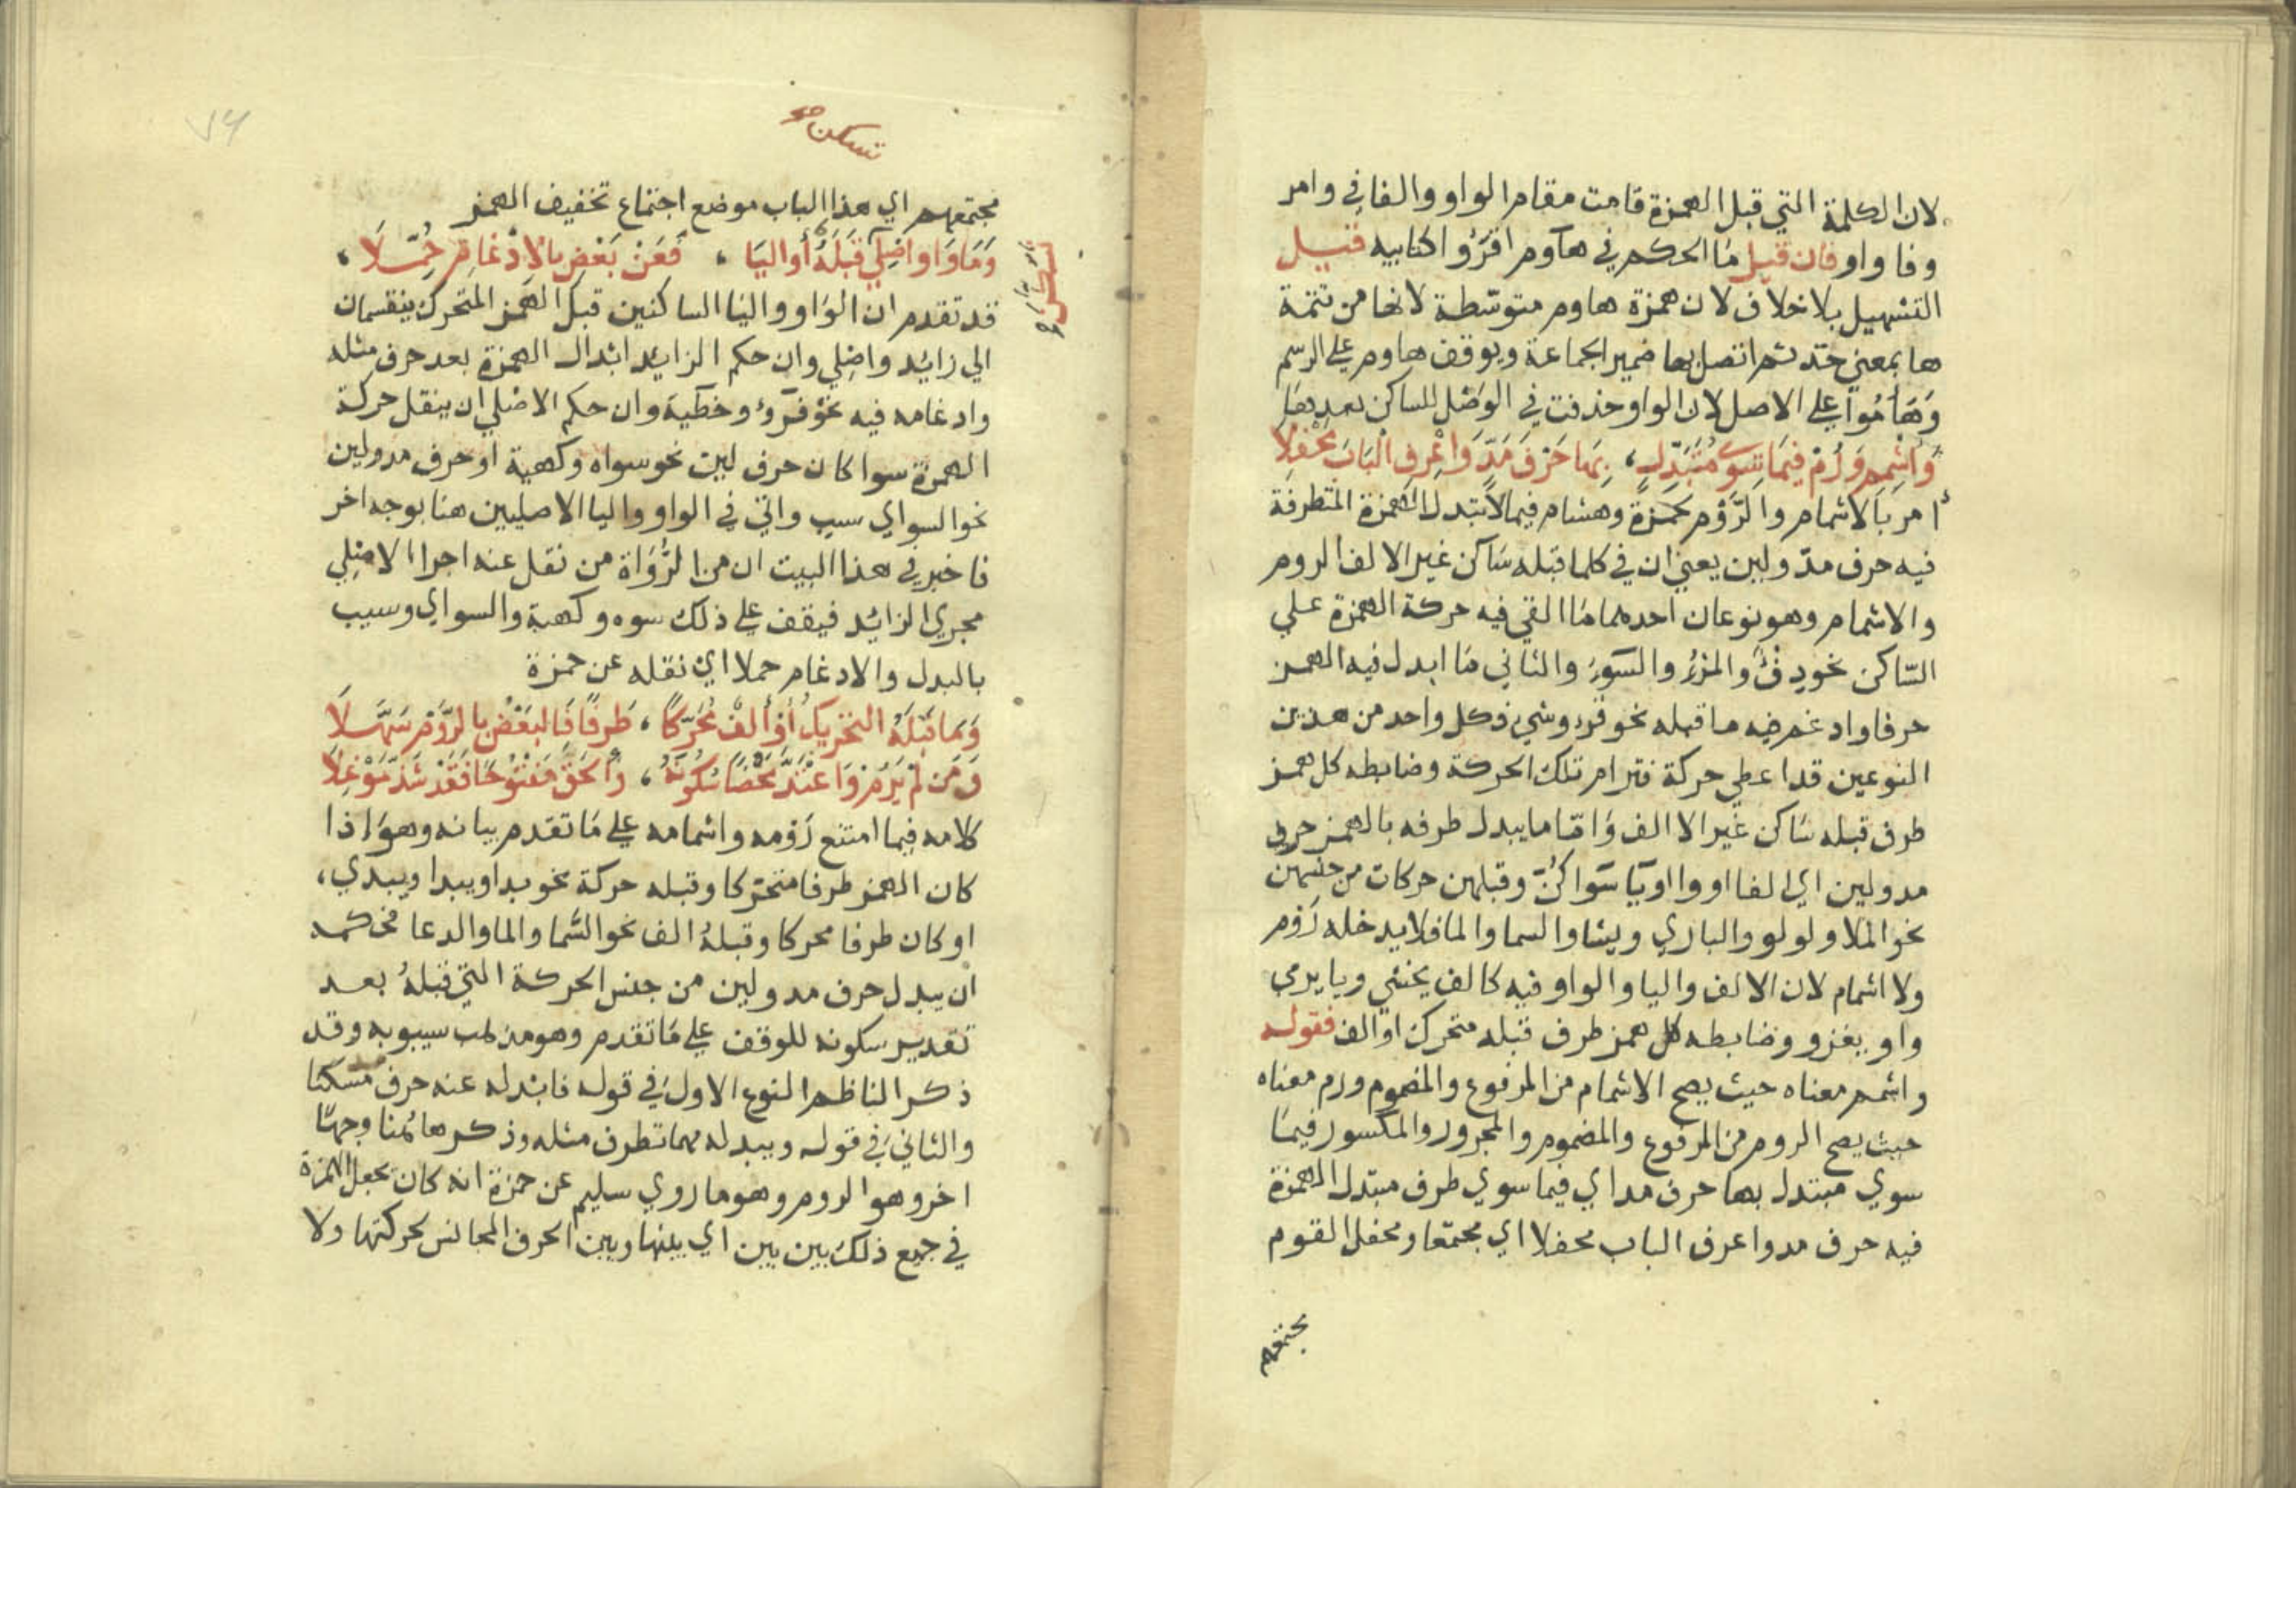 لان الكلمة التي قبل الهمزة قامت مقام الواو والفا في وامر
وفا واو فان قيل ما الحكم في هآوم اقرؤا كتابيه قيل
التسهيل بلا خلاف لان همزة هاوم متوسطة لانها من تتمة
ها بمعني خذ ثم اتصل بها ضمير الجماعة ويوقف هاوم علي الرسم
وهاموا علي الاصل لان الواو حذفت في الوصل للساكن بعدها
وَاَشْمِم وَرُمْ فيمَا سِوَي مُتَبَدِّلٍ، بِهَا حَرْفَ مَدٍّ وَاعْرِفِ الْبَابَ مَحْفِلَا
أمر بالاشمام والرَّوْم لحمزة وهشام فيما لا تبدل الهمزة المتطرفة
فيه حرف مدّ ولين يعني ان في كلما قبله ساكن غير الالف الروم
والاشمام وهو نوعان احدهما ما القي فيه حركة الهمزة علي
السّاكن نحو دفْ والمرء والسوء والثاني ما ابدل فيه الهمز
حرفا وادغم فيه ما قبله نحو قرو وشي فكل واحد من هذين
النوعين قد اعطي حركة فترام تلك الحركة وضابطه كل همز
طرف قبله ساكن غير الالف وامّا ما يبدل طرفه بالهمز حرف
مد ولين اي الفا او واوا او يا سواكنّ وقبلهن حركات من جنسهن
نحو الملا ولولو والباري ويشا والسما والما فلا يدخله رَوْم
ولا اشمام لان الالف واليا والواو فيه كالف يخشي ويا يرمي
واو يغزو وضابطه كل همز طرف قبله متحرك او الف فقوله
واشمم معناه حيث يصح الاشمام من المرفوع والمضموم ورم معناه
حيث يصح الروم من المرفوع والمضموم والمجرور والمكسور فيما
سوي مبتدل بها حرف مد اي فيما سوي طرف مبتدل الهمزة
فيه حرف مد واعرف الباب محفلا اي مجتمعا ومحفل القوم
مجتمعهم
تسكن
مجتمعهم اي هذا الباب موضع اجتماع تخفيف الهمز
وَمَا وَاو اصْلِيّ قَبْلَهُ أو اليَا ، فَعَنْ بَعْضٍ بالاِدْغَامِ حُمِّلَا ،
قد تقدم ان الواو واليا الساكنين قبل الهمز المتحرك ينقسمان
الي زائد واصلي وان حكم الزايد ابدال الهمزة بعد حرف مثله
وادغامه فيه نحو قروء وخطية وان حكم الاصلي ان ينقل حركة
الهمزة سوا كان حرف لين نحو سواه وكهية او حرف مد ولين
نحو السواي سيب واتي في الواو واليا الاصليين هنا بوجه اخر
فاخبر في هذا البيت ان من الرُّوَاة من نقل عنه اجرا الاصلي
مجري الزائد فيقف علي ذلك سوه وكهية والسواي وسيب
بالبدل والادغام حملا اي نقله عن حمزة
وَمَا قَبْلَهُ التحريكُ أوْ ألفٌ مُحَرَّكًا ، طَرفًا فَالبَعْضُ بالرَّوْمِ سَهَّلَا
وَمَن لَمْ يَرُمْ وَاعْتَدَّ مَحْضًا سُكُونَهُ ، وأَلحَقَ مَفْتُوحًا فَقَدْ شَذَّ مُوْغِلَا
كلامه فيما امتنع رَوْمه واشمامه علي ما تقدم بيانه وهو اذا
كان الهمز طرفا متحركا وقبله حركة نحو بدا ويبدا ويبدي،
او كان طرفا محركا وقبله الف نحو السما والما والدعا فحكمه
أن يبدل حرف مد ولين من جنس الحركة التي قبلهُ بعد
تقدير سكونه للوقف علي ما تقدم وهو مذهب سيبويه وقد
ذكر الناظم النوع الاول في قوله فابدله عنه حرف مد مسكنا
والثاني في قوله ويبدله مهما تطرف مثله وذكر هاهنا وجهًا
اخر وهو الروم وهو ما روي سليم عن حمزة انه كان يجعل الهمزة
في جميع ذلك بين بين اي بينها وبين الحرف المجانس لحركتها ولا